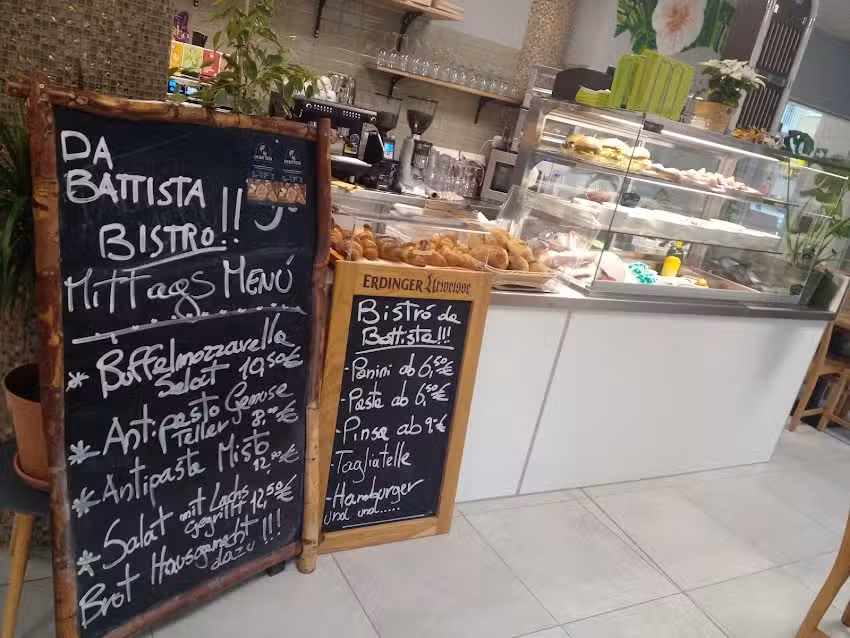 DA
BATTISTA
BISTRO!!
MITTAGS MENÚ
* Büffelmozzarella
Salat 10,50€
* Antipasto Gemüse
Teller 8,00€
* Antipasta Misto
12,00€
* Salat mit Lachs
gegrillt 12,50€
Brot Hausgemacht!!!
dazu
ERDINGER Urweisse
Bistró da
Battista!!!
- Panini ab 6,50€
- Pasta ab 6,50€
- Pinsa ab 9.-€
- Tagliatelle
- Hamburger
und und.....